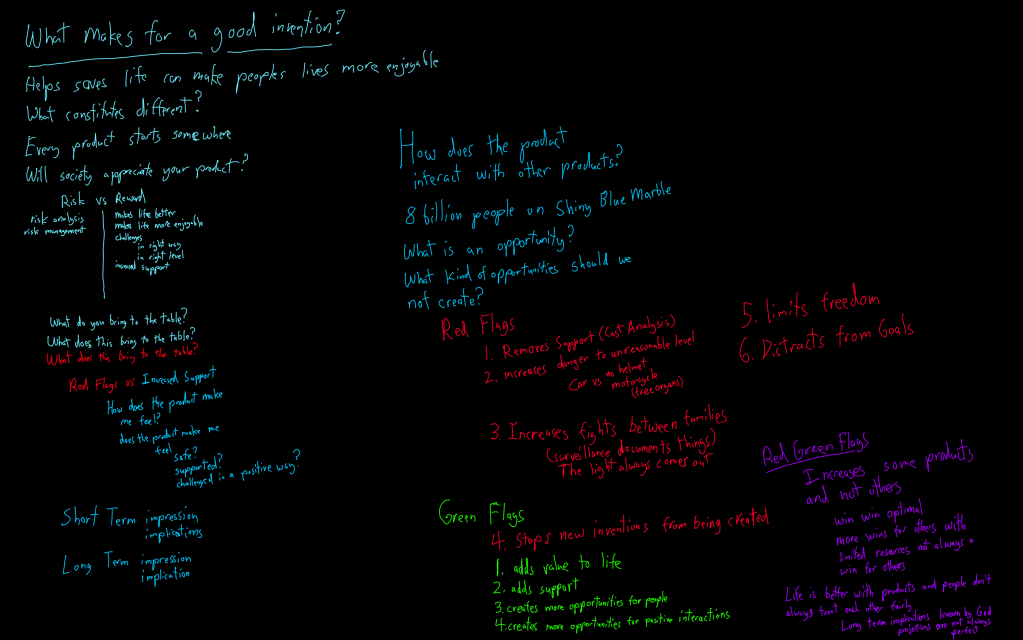 What makes for a good invention?
Helps saves life can make peoples lives more enjoyable
What constitutes different?
Every product starts somewhere
Will society appreciate your product?
Risk vs Reward
risk analysis
risk management
makes life better
makes life more enjoyable
challenges
in right way
in right level
increased support
What do you bring to the table?
What does this bring to the table?
What does this bring to the table?
Red Flags vs Increased Support
How does the product make
me feel?
does the product make me
feel
safe?
supported?
challenged in a positive way?
Short Term impression
implications
Long Term impression
implication
How does the product
interact with other products?
8 billion people on Shiny Blue Marble
What is an opportunity?
What kind of opportunities should we
not create?
Red Flags
1. Removes support (Cost Analysis)
2. increases danger to unreasonable level
Car vs no helmet
motorcycle
(free organs)
3. Increases fights between families
(surveillance documents things)
The light always comes out
4. Stops new inventions from being created
5. limits freedom
6. Distracts from Goals
Green Flags
1. adds value to life
2. adds support
3. creates more opportunities for people
4. creates more opportunities for positive interactions
Red Green Flags
Increases some products
and not others
win win optimal
more wins for others with
limited resources not always a
win for others
Life is better with products and people don't
always treat each other fairly
Long term implications known by God
projections are not always
perfect